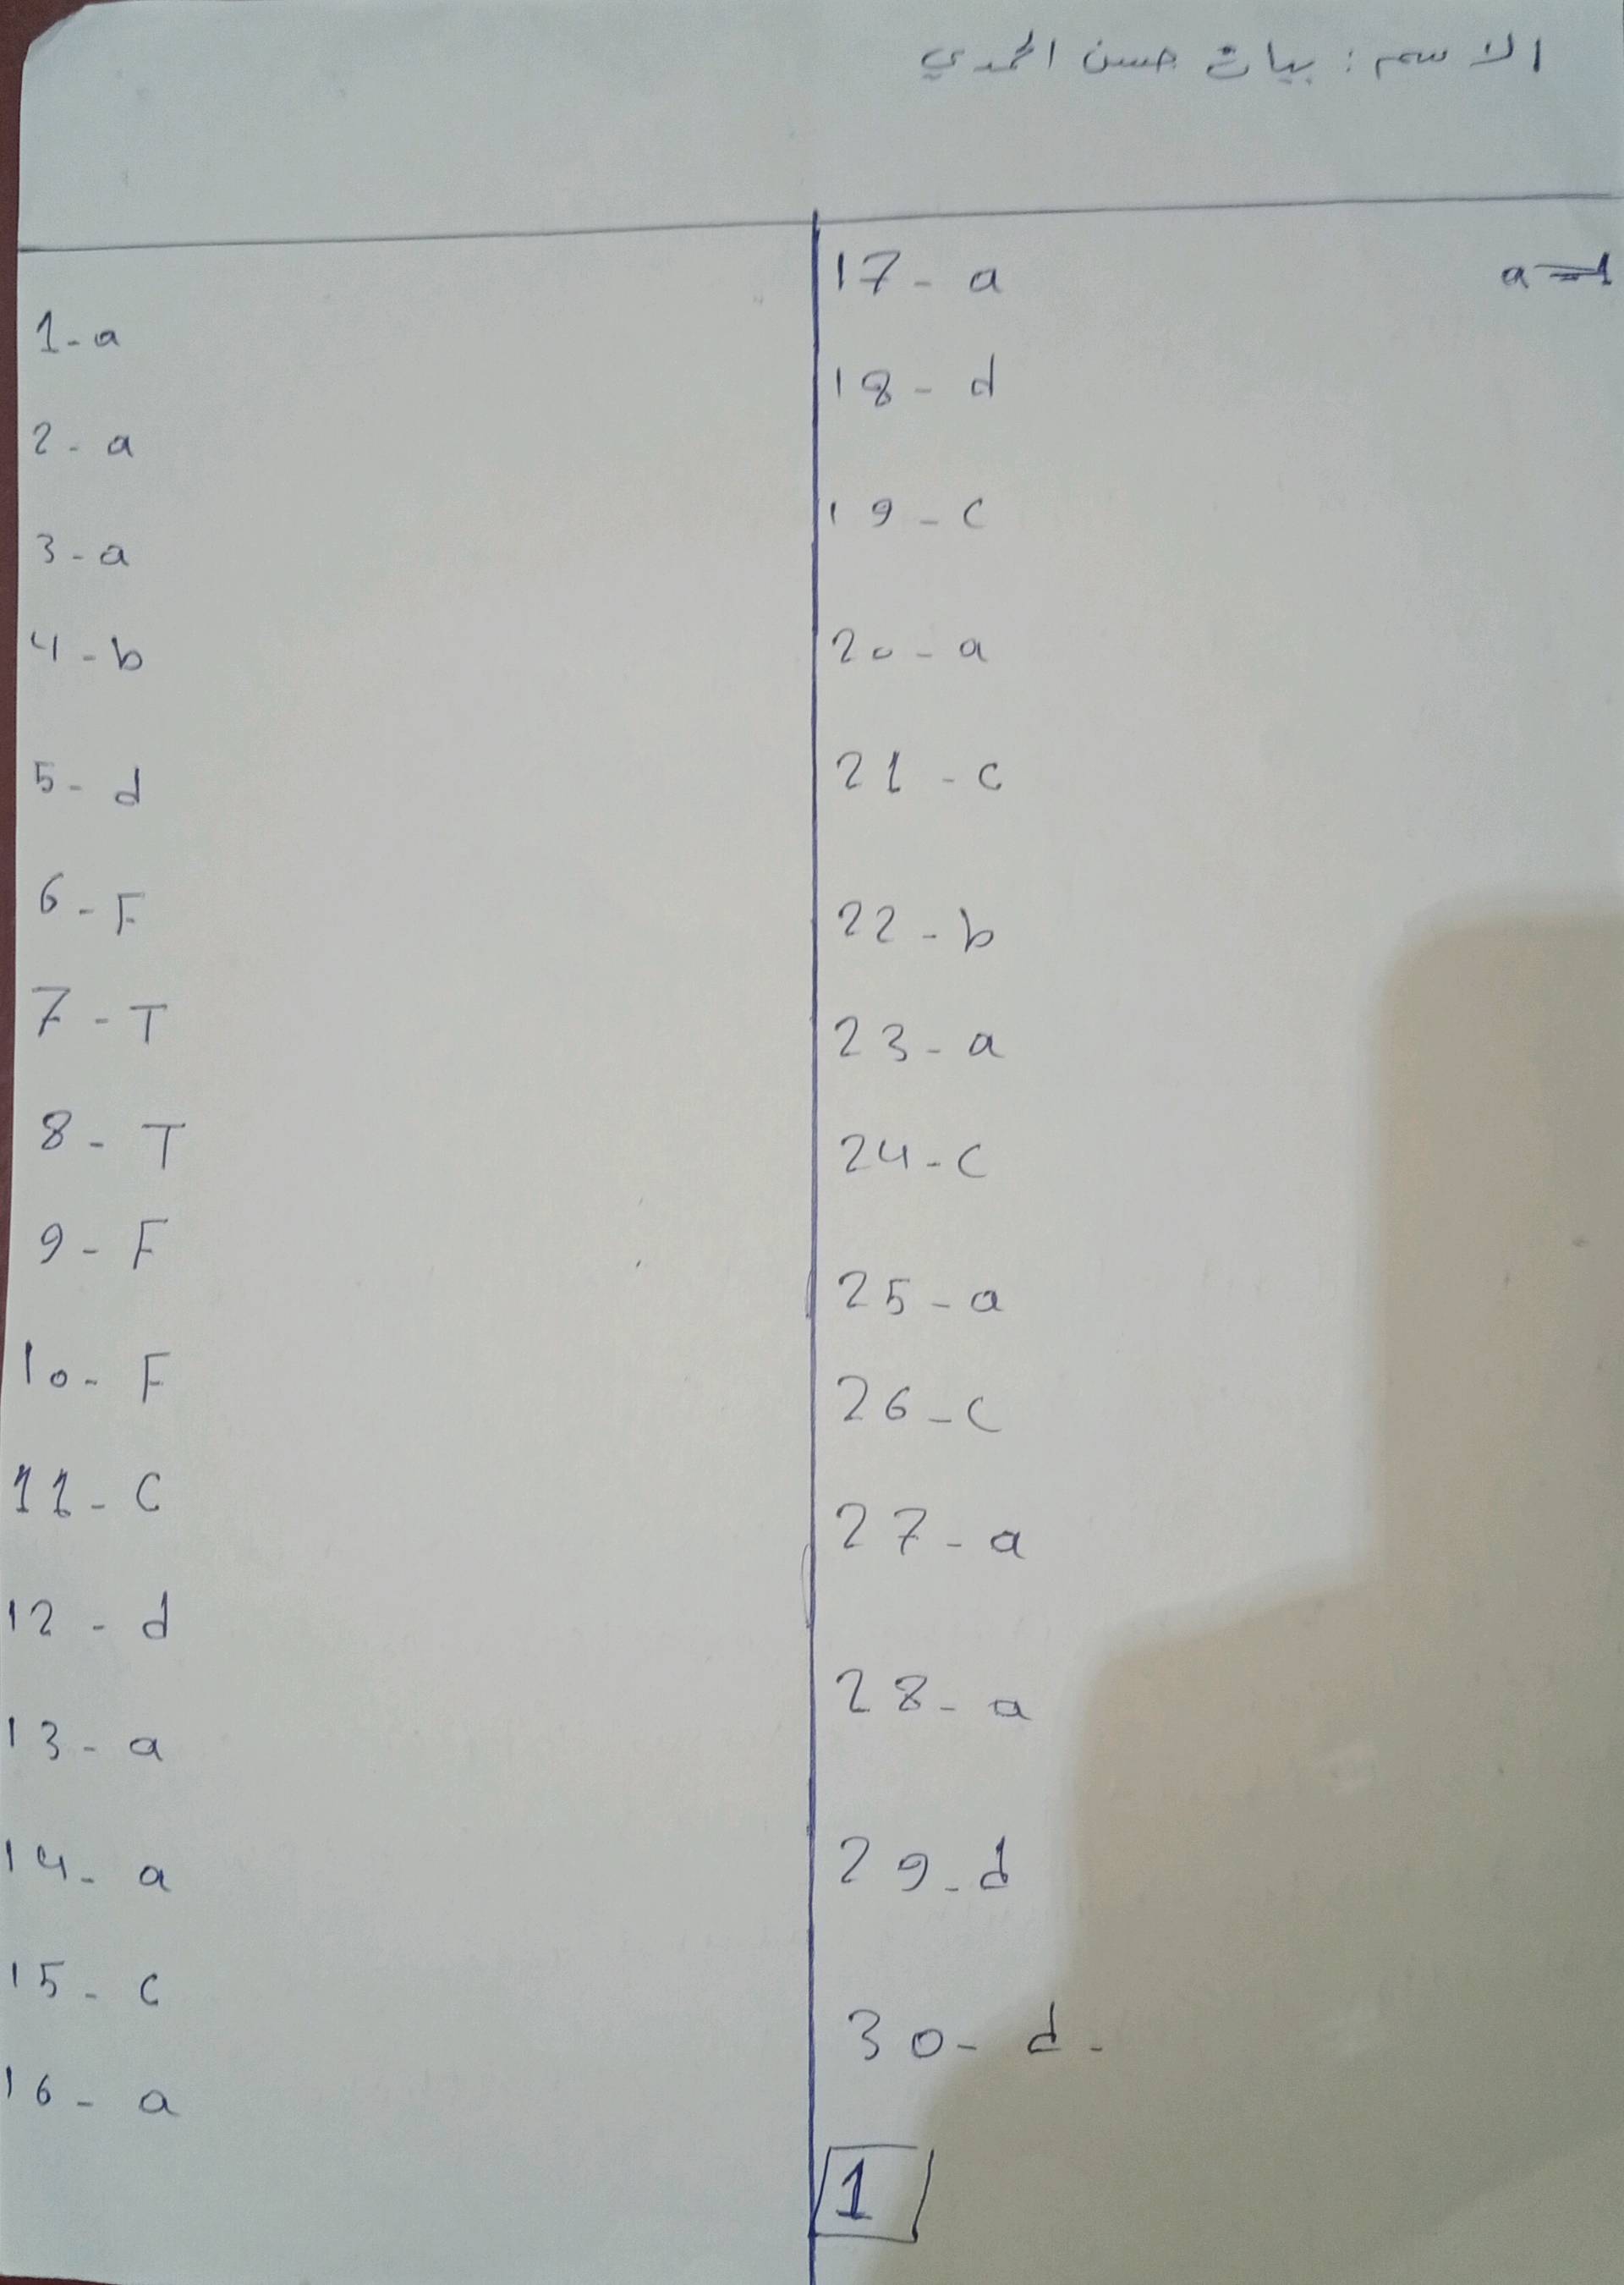 الاسم : بيان حسن المحمدي
1-a
2-a
3-a
4-b
5-d
6-F
7-T
8-T
9-F
10-F
11-C
12-d
13-a
14-a
15-c
16-a
17-a
18-d
19-c
20-a
21-c
22-b
23-a
24-c
25-a
26-c
27-a
28-a
29-d
30-d-
1